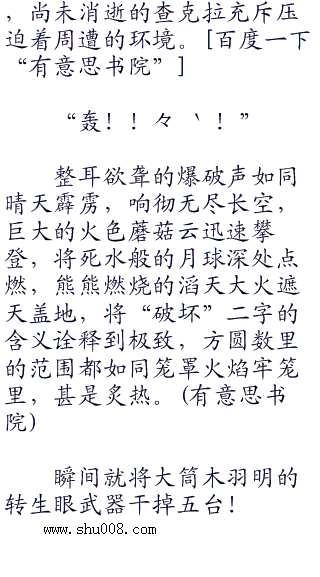 ，尚未消逝的查克拉充斥压
迫着周遭的环境。[百度一下
“有意思书院”]
“轰！！々 ‵！”
整耳欲聋的爆破声如同
晴天霹雳，响彻无尽长空，
巨大的火色蘑菇云迅速攀
登，将死水般的月球深处点
燃，熊熊燃烧的滔天大火遮
天盖地，将“破坏”二字的
含义诠释到极致，方圆数里
的范围都如同笼罩火焰牢笼
里，甚是炙热。(有意思书
院)
瞬间就将大筒木羽明的
转生眼武器干掉五台！
www.shu008.com